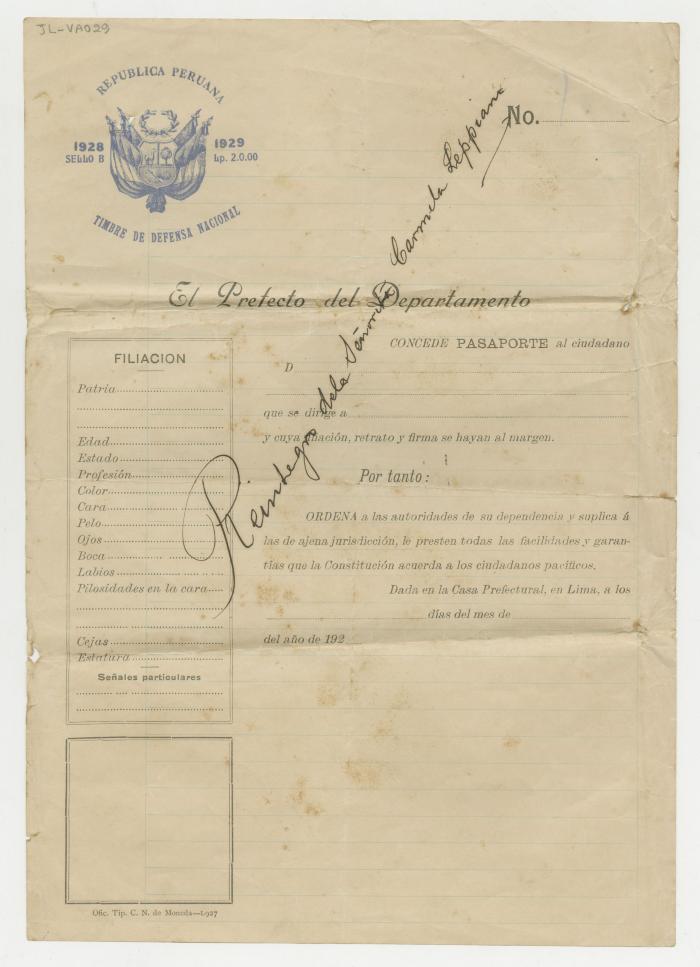 JL-VA029
REPUBLICA PERUANA
1928 1929
SELLO B Lp. 2.0.00
TIMBRE DE DEFENSA NACIONAL
No.
El Prefecto del Departamento
CONCEDE PASAPORTE al ciudadano
D
que se dirige a
y cuya filiación, retrato y firma se hayan al margen.
Por tanto:
ORDENA a las autoridades de su dependencia y suplica á
las de ajena jurisdicción, le presten todas las facilidades y garan-
tías que la Constitución acuerda a los ciudadanos pacíficos.
Dada en la Casa Prefectural, en Lima, a los
días del mes de
del año de 192
FILIACION
Patria
Edad
Estado
Profesión
Color
Cara
Pelo
Ojos
Boca
Labios
Pilosidades en la cara
Cejas
Estatura
Señales particulares
Reintegro dela Señorita Carmela Leppiani
Ofic. Tip. C. N. de Moneda—1927